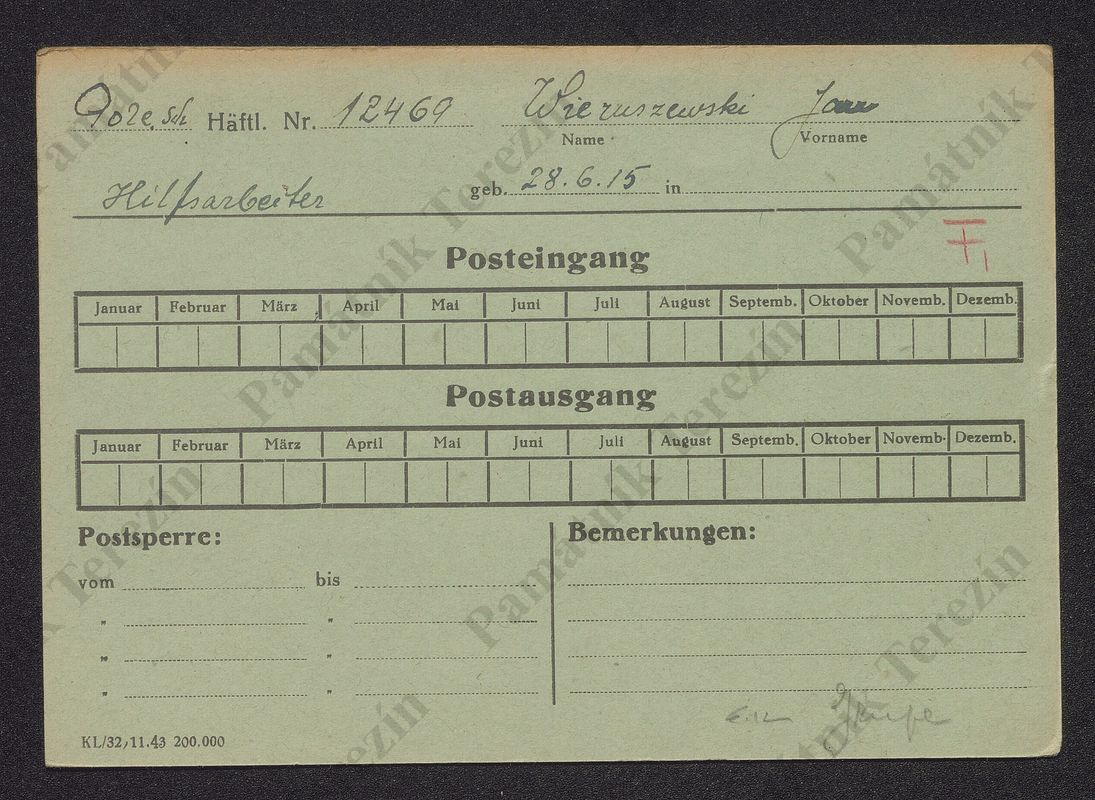 Pole. Sch. Häftl. Nr. 12469 Wieruszewski Jan
Name Vorname
Hilfsarbeiter geb. 28.6.15 in
Posteingang
Januar Februar März April Mai Juni Juli August Septemb. Oktober Novemb. Dezemb.
Postausgang
Januar Februar März April Mai Juni Juli August Septemb. Oktober Novemb. Dezemb.
Postsperre: Bemerkungen:
vom bis
" "
" "
" "
KL/32, 11.43 200.000
Památník Terezín